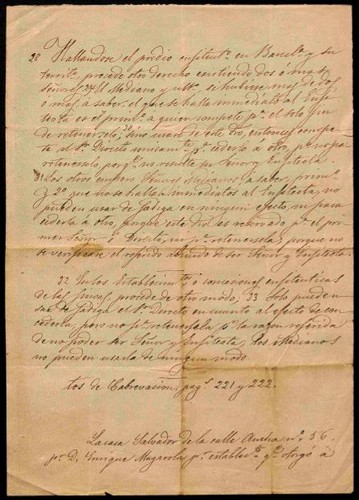 28 Hallandose el predio enfiteutº en Barcelª y su
territº, procede otro derecho existiendo dos ó mas
Señores, el Mediano y ultº se hubiere mas de dos
ó mas, á saber, el que se halla inmediato al Enfi
teota es el primº a quien compete pº el solo fin
de retenerselo; sino usare de este dro, entonces compe
te al Sº Directo unicamtº pª cederlo á otro, pº no para
retenerselo, porqº no resulte ser Senor y Enfiteota.
31 Los otros Señores Medianos, á saber, primº
y 2º que no se halla inmediatos al Enfiteota, no
pueden usar de fadiga en ningun efecto, ni para
cederlo á otro, porque este dro. es reservado pª el pri
mer Señor ó Directo, ni pª retenerselo porque no
se verifique el referido absurdo de ser Señor y Enfiteota.
32 En los Establecimtº ó concesiones enfiteuticas
de las procede de otro modo, 33 Solo pueden
usar de fadiga el Sº Directo en cuanto al efecto de con
cederla, pero no pª retenersela, pº la razon referida
de no poder ser Señor y Enfiteota, Los Medianos
no pueden usarla de ningun modo
tos de Cabrevacion, pagª 221 y 222.
La casa Salvador de la calle Ancha nº 56
pº D. Enrique Magarola pº establecº qº otorgó á